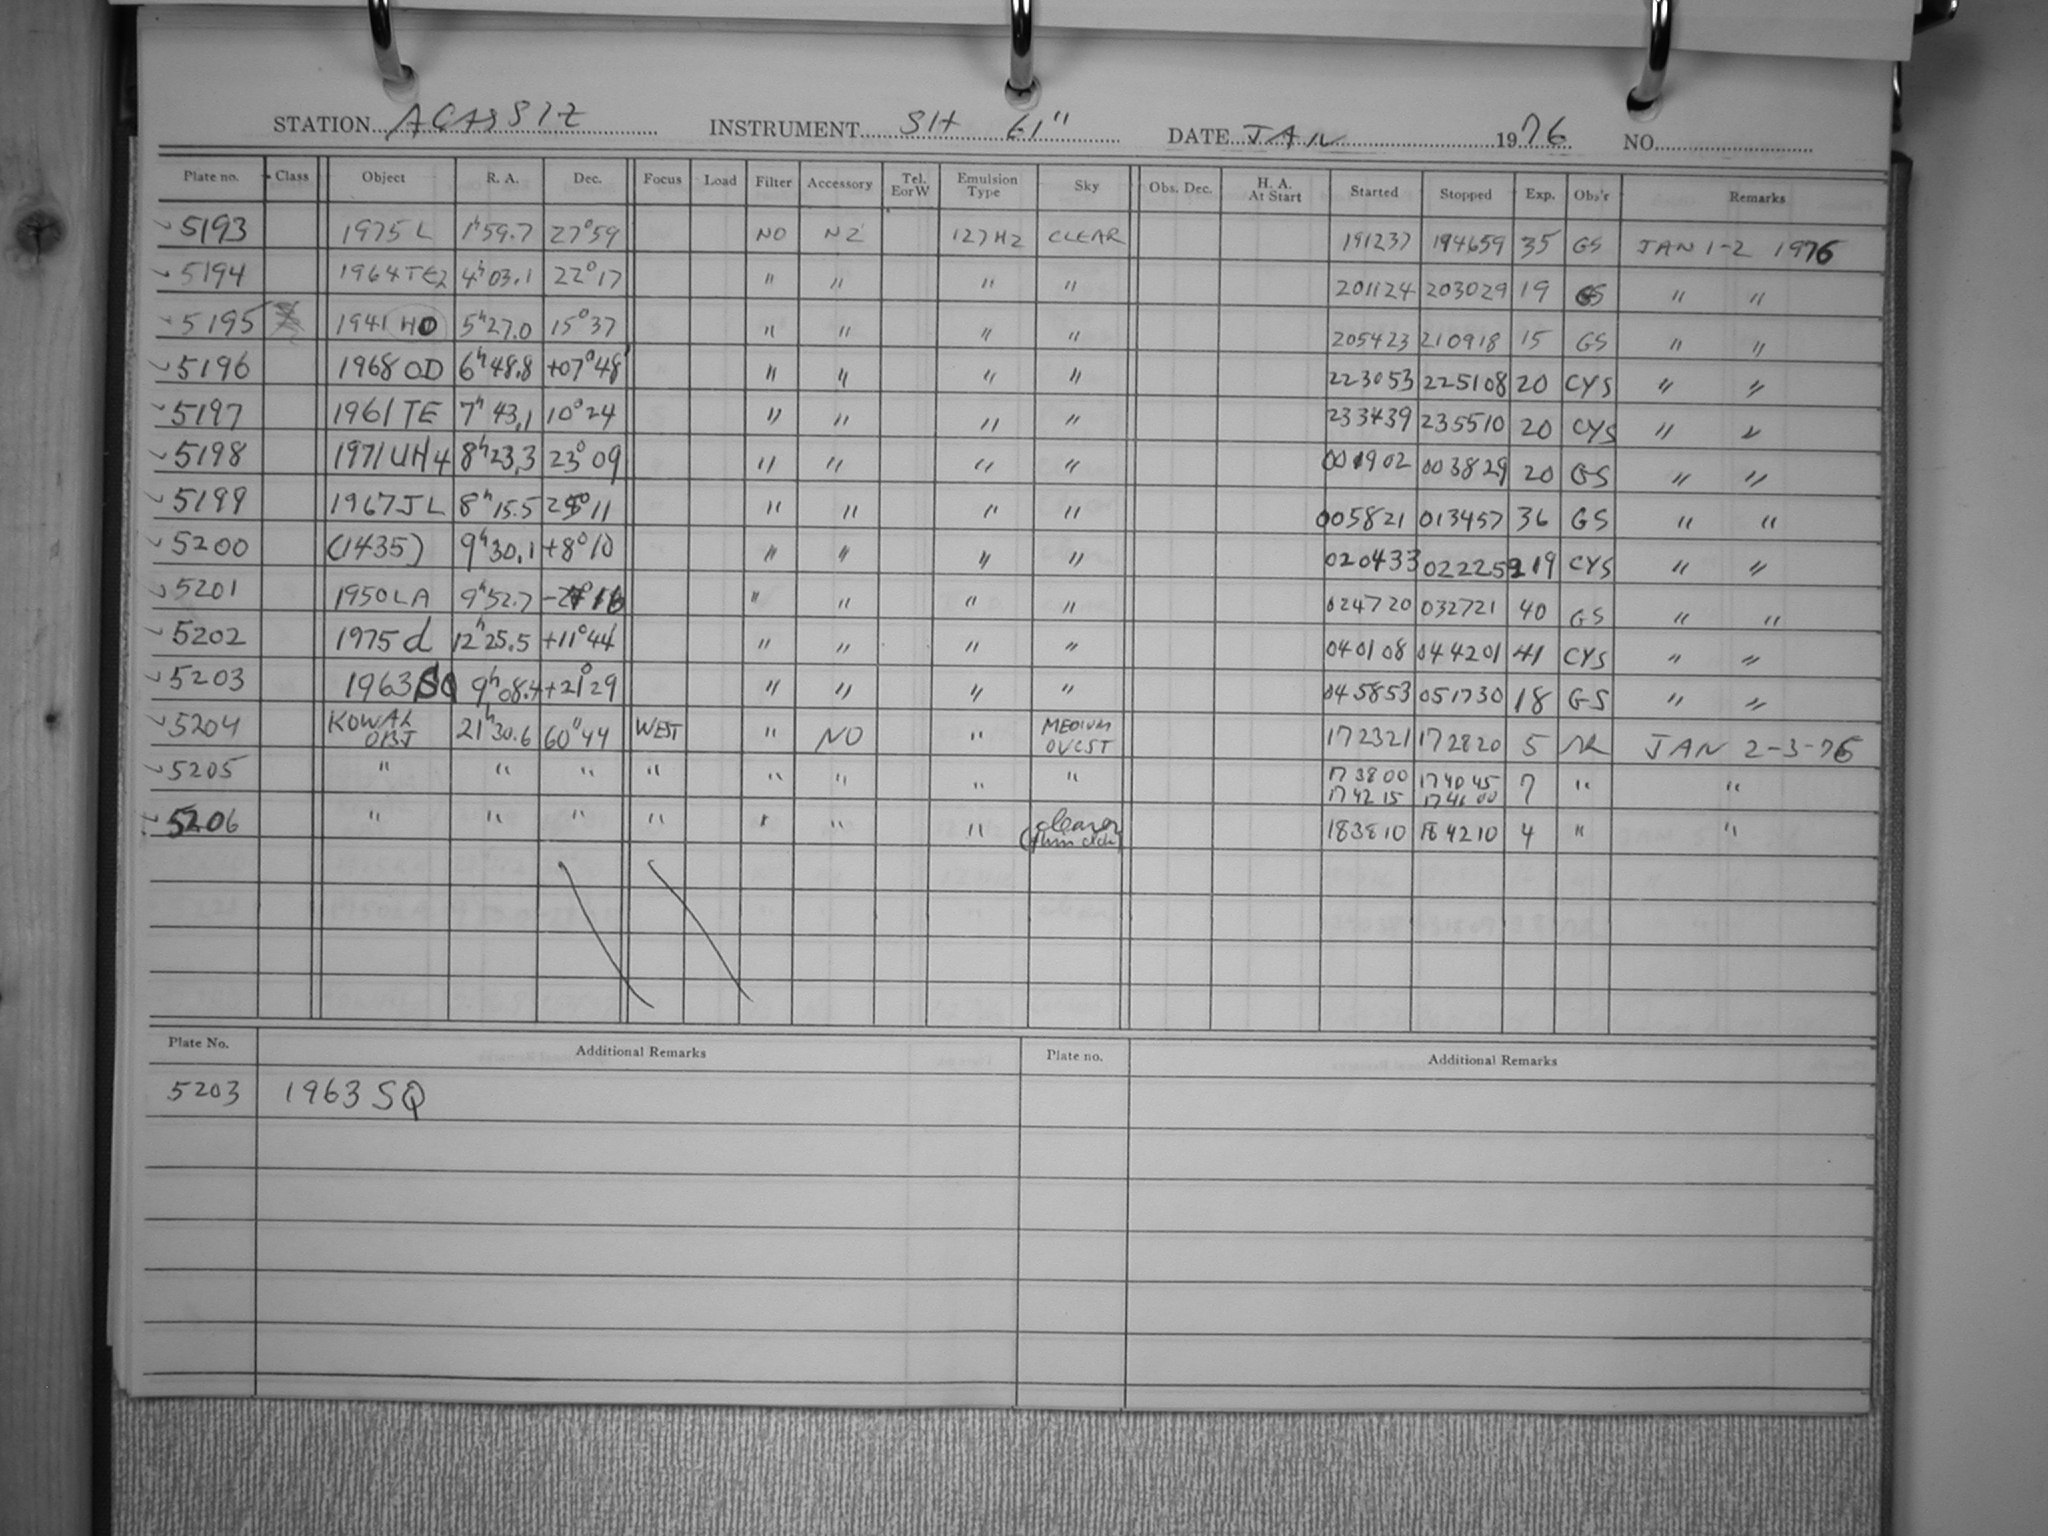 STATION AGASSIZ INSTRUMENT SH 61" DATE JAN 1976 NO.
Plate no. Class Object R. A. Dec. Focus Load Filter Accessory Tel. E or W Emulsion Type Sky Obs. Dec. H. A. At Start Started Stopped Exp. Obs'r Remarks
5193 1975 L 1h59.7 27°59 NO N2 127H2 CLEAR 191237 194659 35 GS JAN 1-2 1976
5194 1964 TE2 4h03.1 22°17 " " " " 201124 203029 19 GS " "
5195 1941 HO 5h27.0 15°37 " " " " 205423 210918 15 GS " "
5196 1968 OD 6h48.8 +07°48' " " " " 223053 225108 20 CYS " "
5197 1961 TE 7h43.1 10°24 " " " " 233439 235510 20 CYS " "
5198 1971 UH4 8h23.3 23°09 " " " " 001902 003829 20 GS " "
5199 1967 JL 8h15.5 " " " " 005821 013457 36 GS " "
5200 (1435) 9h30.1 +8°10 " " " " 020433 022259 19 CYS " "
5201 1950 LA 9h52.7 " " " " 024720 032721 40 GS " "
5202 1975 d 12h25.5 +11°44 " " " " 040108 044201 41 CYS " "
5203 1963 SQ 9h08.4 +21°29 " " " " 045853 051730 18 GS " "
5204 KOWAL OBJ 21h30.6 60"44 WEST " NO " MEDIUM OVCST 172321 172820 5 JAN 2-3-76
5205 " " " " " " " " 173800 174045 7 " "
174215 174600
5206 " " " " " " " clearer (thin cld) 183810 184210 4 " "
Plate No. Additional Remarks Plate no. Additional Remarks
5203 1963 SQ